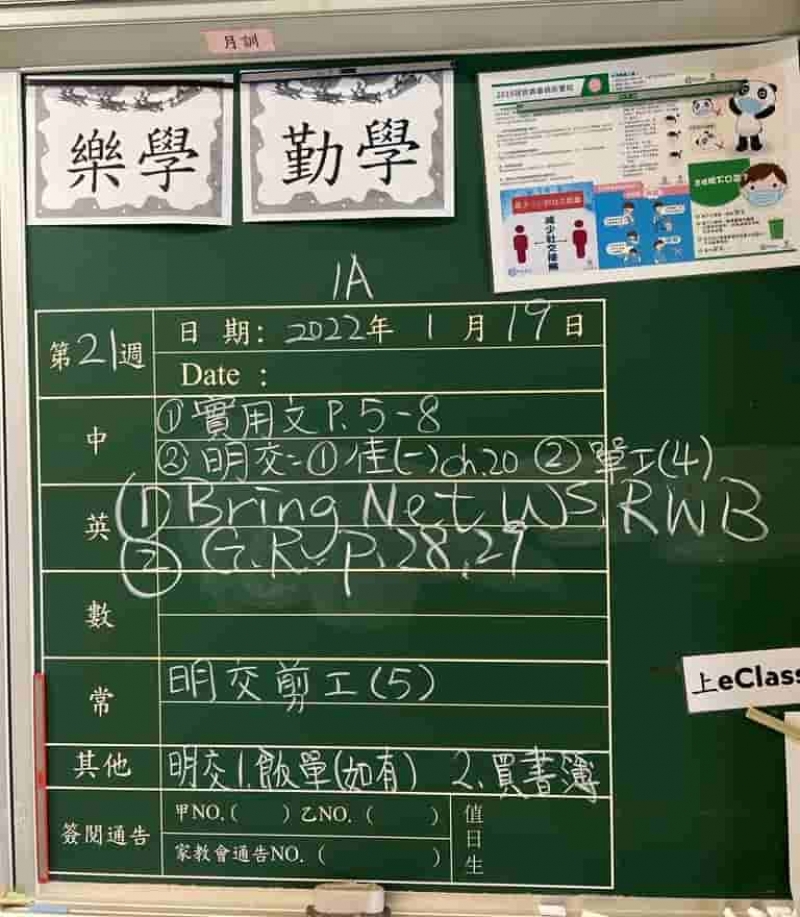 月訓
樂學
勤學
減少社交接觸
1A
第21週
日 期: 2022年 1 月 19 日
Date :
中
① 實用文 P.5-8
② 明交:① 佳(一)ch.20 ② 單工(4)
英
(1) Bring Net, WS, RWB
(2) G.R. p.28,29
數
常
明交剪工(5)
其他
明交1.飯單(如有) 2.買書簿
簽閱通告
甲NO.( ) 乙NO. ( )
家教會通告NO. ( )
值日生
上eClass